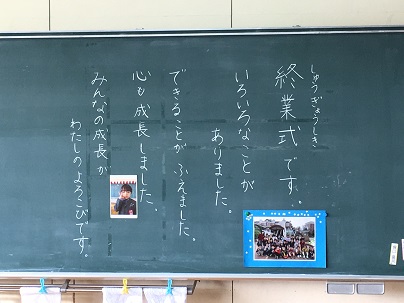 しゅうぎょうしき
終業式です。
いろいろなことが
ありました。
できることが ふえました。
心も成長しました。
みんなの成長が
わたしのよろこびです。